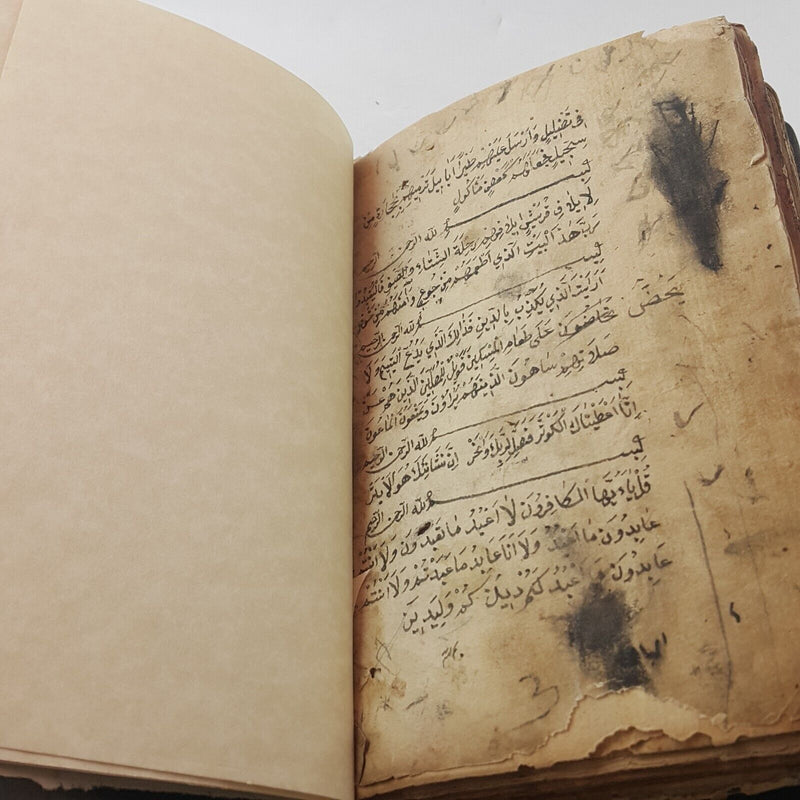 فى تَضْلِيلٍ وَأَرْسَلَ عَلَيْهِمْ طَيْرًا اَبَابِيلَ تَرْمِيهِمْ بِحِجَارَةٍ مِنْ
سِجِّيلٍ فَجَعَلَهُمْ كَعَصْفٍ مَأْكُولٍ
بسم الله الرحمن الرحيم
لِاِيلَافِ قُرَيْشٍ اِيلَافِهِمْ رِحْلَةَ الشِّتَاءِ وَالصَّيْفِ فَلْيَعْبُدُوا
رَبَّ هٰذَا الْبَيْتِ الَّذِي اَطْعَمَهُمْ مِنْ جُوعٍ وَآمَنَهُمْ مِنْ خَوْفٍ
بسم الله الرحمن الرحيم
اَرَاَيْتَ الَّذِي يُكَذِّبُ بِالدِّينِ فَذٰلِكَ الَّذِي يَدُعُّ الْيَتِيمَ وَلَا
يَحُضُّ
عَلَى طَعَامِ الْمِسْكِينِ فَوَيْلٌ لِلْمُصَلِّينَ الَّذِينَ هُمْ عَنْ
صَلَاتِهِمْ سَاهُونَ الَّذِينَ هُمْ يُرَاؤُنَ وَيَمْنَعُونَ الْمَاعُونَ
بسم الله الرحمن الرحيم
اِنَّا اَعْطَيْنَاكَ الْكَوْثَرَ فَصَلِّ لِرَبِّكَ وَانْحَرْ اِنَّ شَانِئَكَ هُوَ الْاَبْتَرُ
بسم الله الرحمن الرحيم
قُلْ يَاءَيُّهَا الْكَافِرُونَ لَا اَعْبُدُ مَا تَعْبُدُونَ وَلَا اَنْتُمْ
عَابِدُونَ مَا اَعْبُدُ وَلَا اَنَا عَابِدٌ مَا عَبَدْتُمْ وَلَا اَنْتُمْ
عَابِدُونَ مَا اَعْبُدُ لَكُمْ دِينُكُمْ وَلِيَ دِينِ